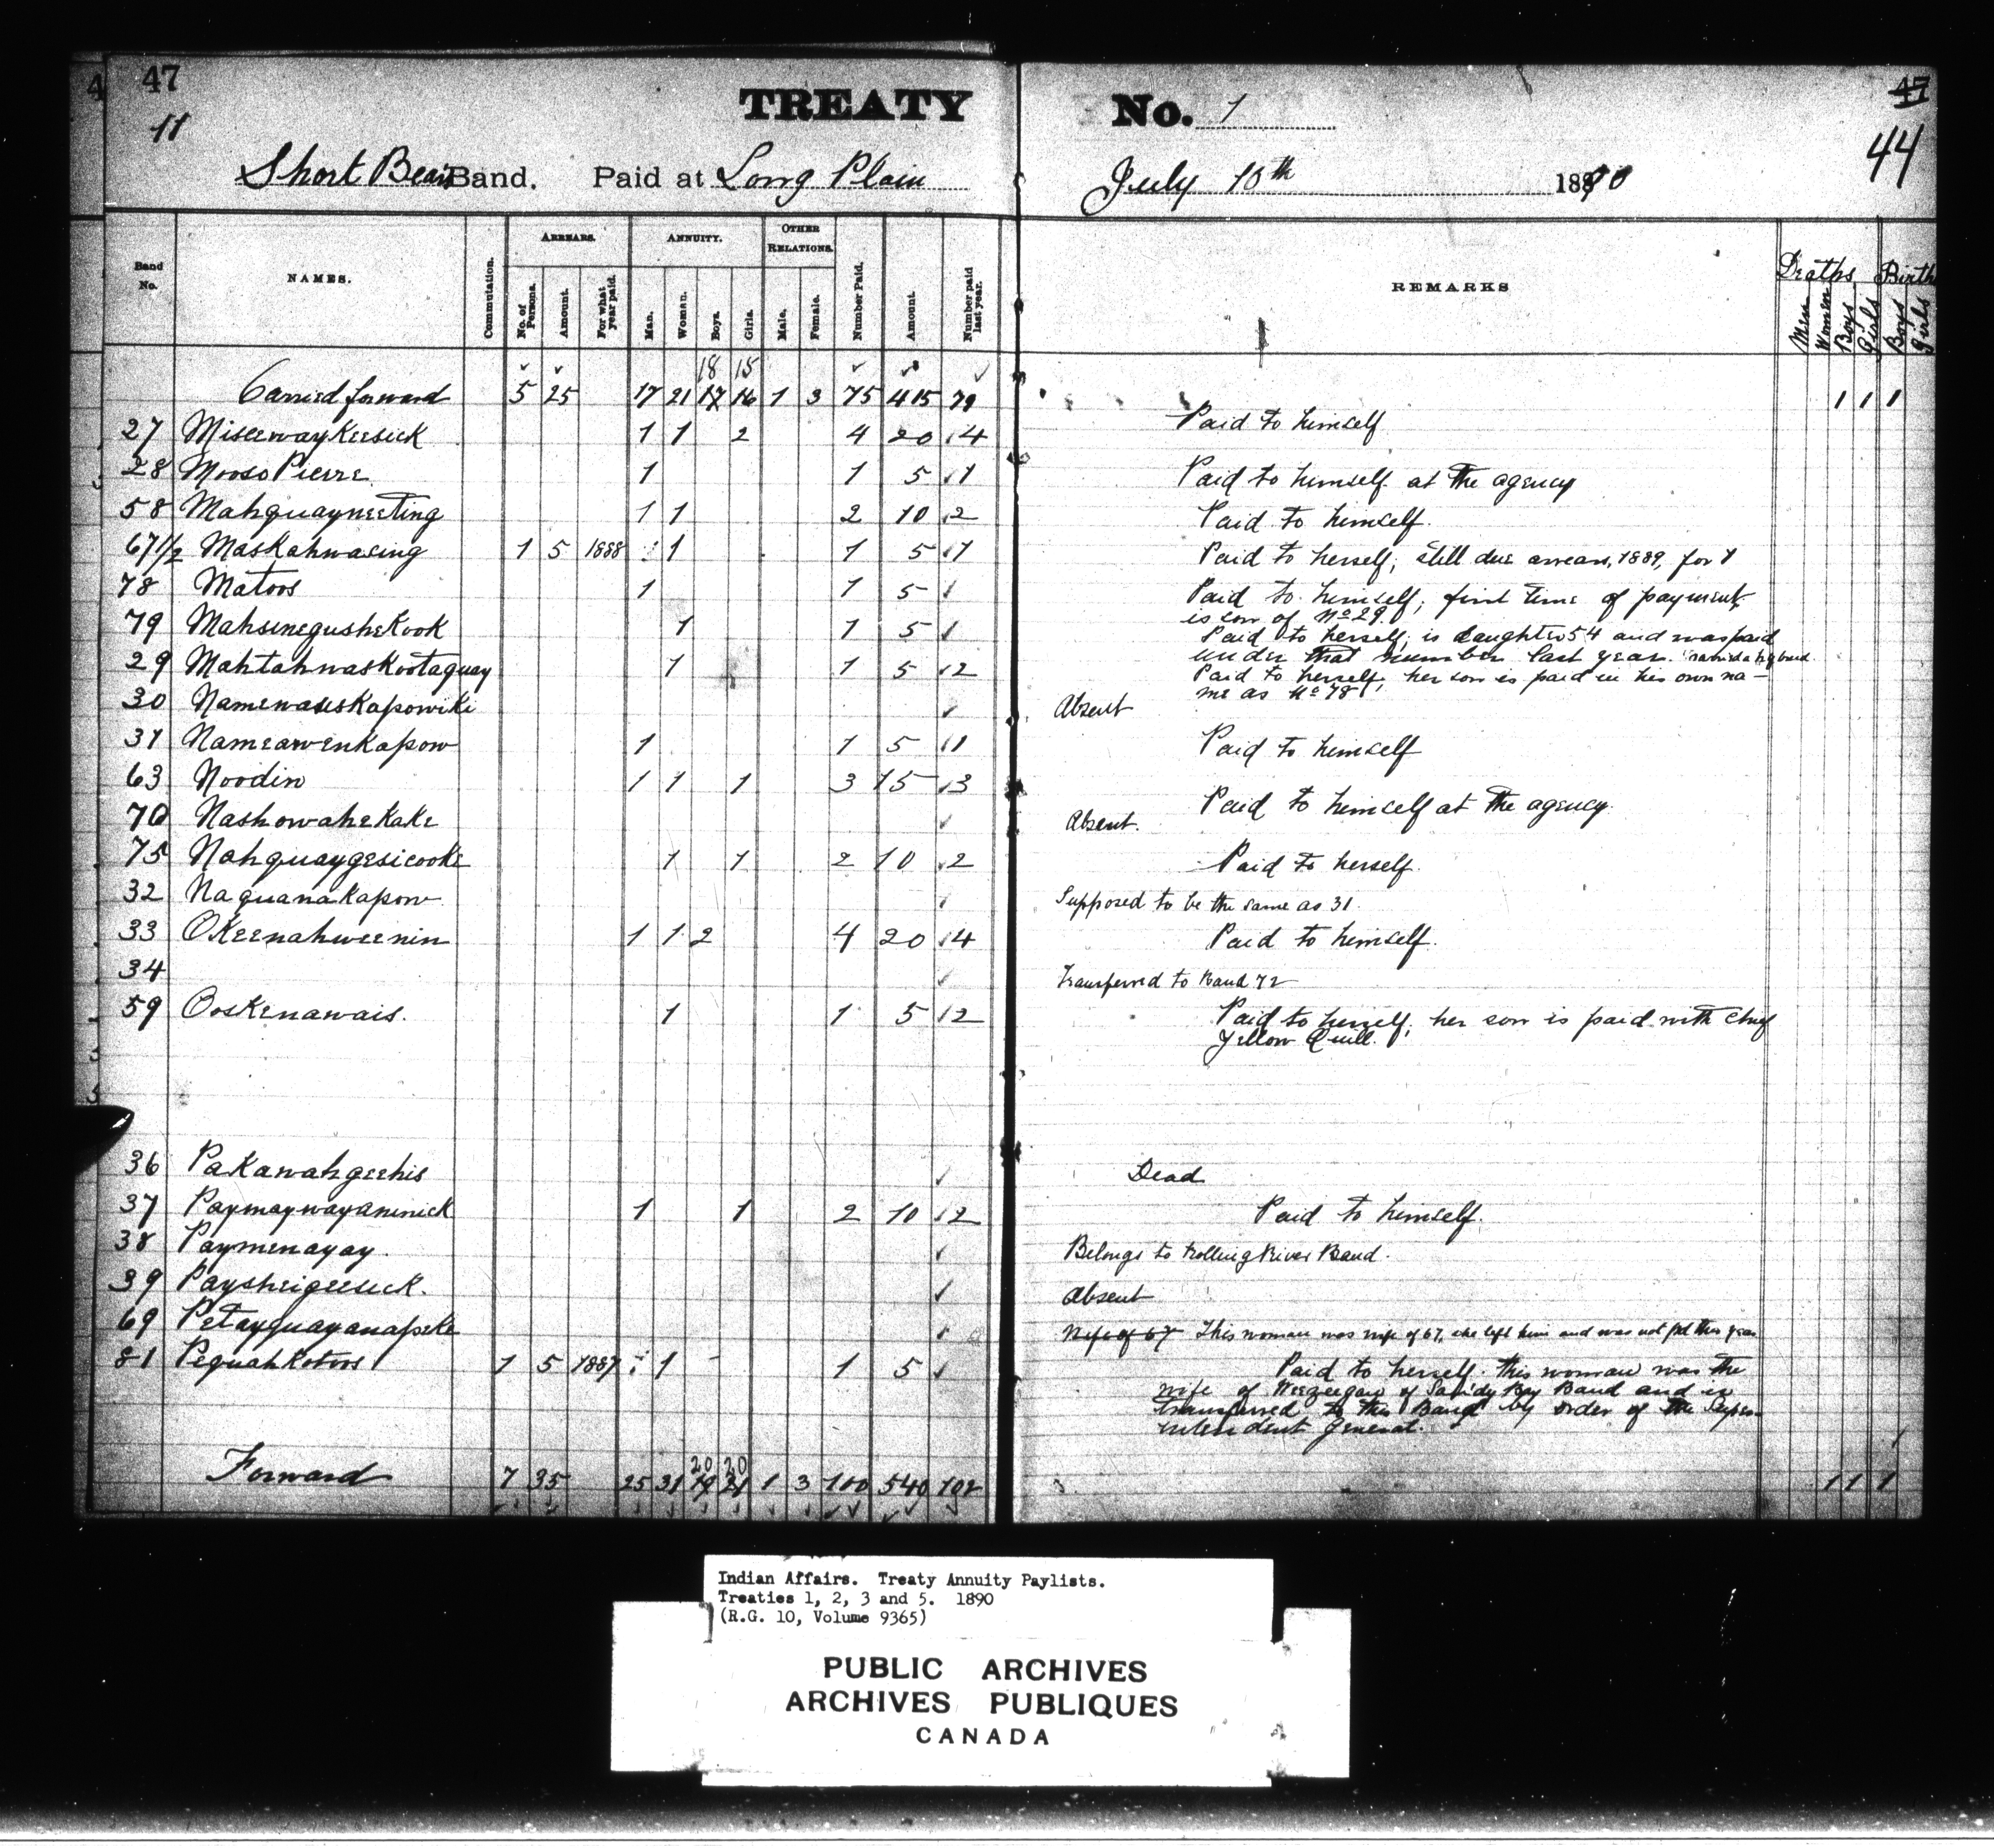 4 47 47
TREATY No. 1
11 44
Short Bear's Band. Paid at Long Plain July 10th 1890
Band No. NAMES. Commutation. ARREARS. No. of Persons. Amount. For what year paid. ANNUITY. Man. Woman. Boys. Girls. OTHER RELATIONS. Male. Female. Number Paid. Amount. Number paid last year. REMARKS Deaths Men Women Boys Girls Births Boys Girls
18 15
Carried forward 5 25 17 21 17 16 1 3 75 415 79 1 1 1
27 Miseewaykeesick 1 1 2 4 20 4 Paid to himself
28 Mooso Pierre 1 1 5 1 Paid to himself at the agency
58 Mahquayneeting 1 1 2 10 2 Paid to himself.
67 1/2 Maskahwasing 1 5 1888 1 1 5 1 Paid to herself; still due arrears, 1889, for 1
78 Matoos 1 1 5 Paid to himself; first time of payment,
is son of No 29.
79 Mahsenegushekook 1 1 5 Paid to herself; is daughter 54 and was paid
under that number last year.
29 Mahtahwaskootaquay 1 1 5 2 Paid to herself; her son is paid in his own na-
me as No 78.
30 Namewaeskapowiki Absent
31 Nameawenkapow 1 1 5 1 Paid to himself
63 Noodin 1 1 1 3 15 3 Paid to himself at the agency.
70 Nashowahekake Absent.
75 Nahquaygesicooke 1 1 2 10 2 Paid to herself.
32 Naquanakapow Supposed to be the same as 31.
33 Okeenahweenin 1 1 2 4 20 4 Paid to himself.
34 Transferred to Band 72
59 Ooskenawais. 1 1 5 2 Paid to herself, her son is paid with Chief
Yellow Quill.
36 Pakawahgeehis Dead
37 Paymaywayaninick 1 1 2 10 2 Paid to himself.
38 Paymenayay. Belongs to Rolling River Band.
39 Paysheigeesick. Absent
69 Petayquayanapeke Wife of 67 This woman was wife of 67, she left him and was not pd this year
81 Pequahkotoos 1 5 1887 1 1 5 Paid to herself. this woman was the
wife of of Sandy Bay Band and is
transferred to this Band by order of the Super-
intendent General.
20 20
Forward 7 35 25 31 19 21 1 3 100 540 102 1 1 1
Indian Affairs. Treaty Annuity Paylists.
Treaties 1, 2, 3 and 5. 1890
(R.G. 10, Volume 9365)
PUBLIC ARCHIVES
ARCHIVES PUBLIQUES
CANADA